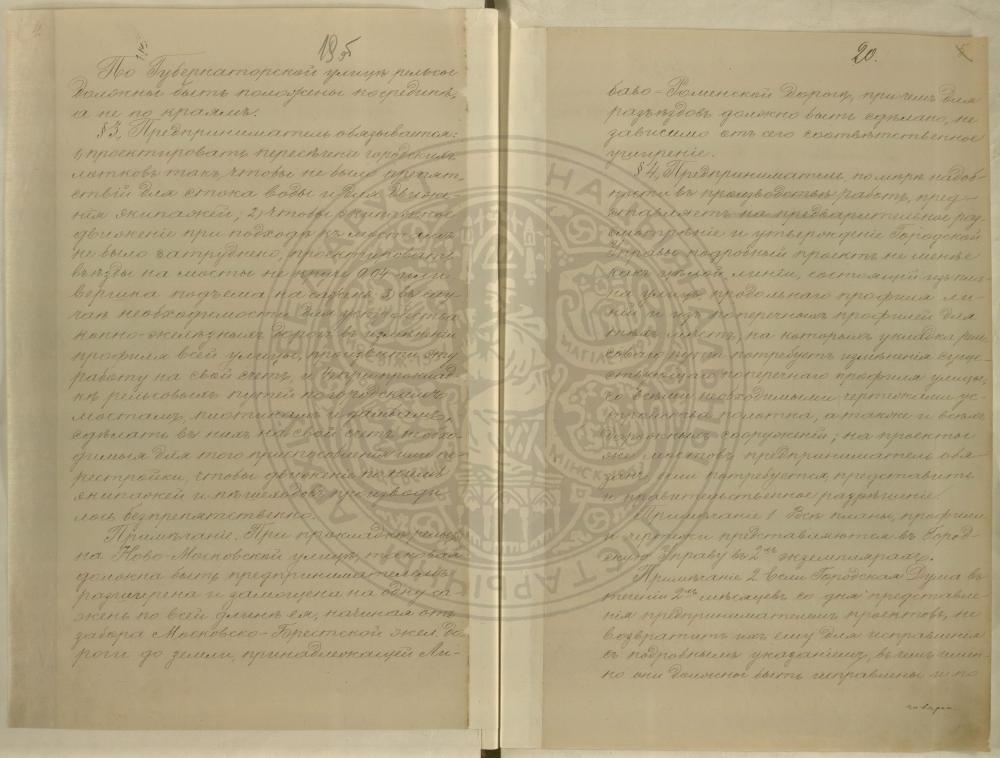 19 об
По Губернаторской улице рельсы
должны быть положены посредине,
а не по краямъ.
§ 3. Предприниматель обязывается:
1) проектировать пересѣченія городскихъ
лотковъ такъ, чтобы не было препят-
ствій для стока воды и для движе-
нія экипажей; 2) чтобы экипажное
движеніе при подходѣ къ мостамъ
не было затруднено, проектировать
въѣзды на мосты не круче 0,04
вершка подъема на сажень; 3) въ слу-
чаѣ необходимости для устройства
конно-желѣзныхъ дорогъ въ измѣненіи
профиля всей улицы, произвести эту
работу на свой счетъ, и 4) при проклад-
кѣ рельсовыхъ путей по городскимъ
мостамъ, и дамбамъ,
сдѣлать въ нихъ на свой счетъ необхо-
димыя для того приспособленія или пе-
рестройки, чтобы движеніе
экипажей и пѣшеходовъ производи-
лось безпрепятственно.
Примѣчаніе. При прокладкѣ рельсъ
на Ново-Московской улицѣ, таковая
должна быть предпринимателемъ
разширена и замощена на одну са-
жень по всей длинѣ ея, начиная отъ
забора Московско-Брестской жел. до-
роги до земли, принадлежащей Ли-
20.
баво-Роменской дорогѣ, при чемъ для
разъѣздовъ должно быть сдѣлано, не
зависимо отъ сего соотвѣтственное
уширеніе.
§ 4. Предприниматель, по мѣрѣ надоб-
ности въ производствѣ работъ, пред-
ставляетъ на предварительное раз-
смотрѣніе и утвержденіе Городской
Управы подробный проектъ не менѣе
какъ цѣлой линіи, состоящій изъ пла-
на улицъ продольнаго профиля ли-
ніи и изъ поперечныхъ профилей для
тѣхъ мѣстъ, на которыхъ укладка рель-
соваго пути потребуетъ измѣненія суще-
ствующаго поперечнаго профиля улицы,
со всѣми необходимыми чертежами ус-
тройства полотна, а также и всѣхъ
дорожныхъ сооруженій; на проекты
же мостовъ предприниматель обя-
занъ, если потребуется представить
и правительственное разрѣшеніе.
Примѣчаніе 1. Всѣ планы, профили
и чертежи представляются въ Город-
скую Управу въ 2хъ экземплярахъ.
Примѣчаніе 2. Если Городская Дума въ
теченіи 2хъ мѣсяцевъ со дня представле-
нія предпринимателемъ проектовъ, не
возвратитъ ихъ ему для исправленія
съ подробнымъ указаніемъ, въ чемъ имен-
но они должны быть исправлены и по
НАЦ
МІНСК